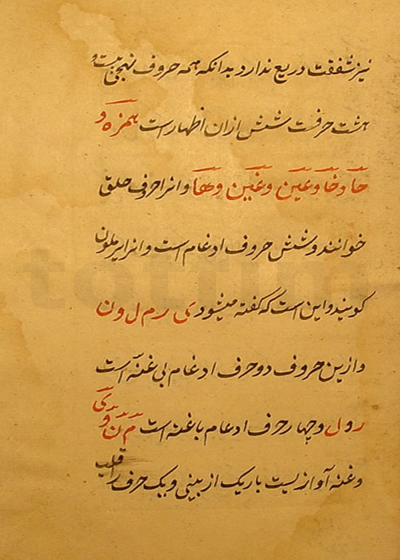 نیز شفقت دریغ ندارد بدانکه همه حروف تهجی بیست و
هشت حرفست شش از ان اظهار است همزه و
حا و خا و عین و غین و ها و انرا حروف حلق
خوانند و شش حروف ادغام است و انرا یرملون
کویند و این است که کفته میشود ی ر م ل و ن
و ازین حروف دو حرف ادغام بی غنه است
ر و ل و چهار حرف ادغام با غنه است م ن و ی
و غنه آوازیست باریک از بینی و یک حرف را قلب